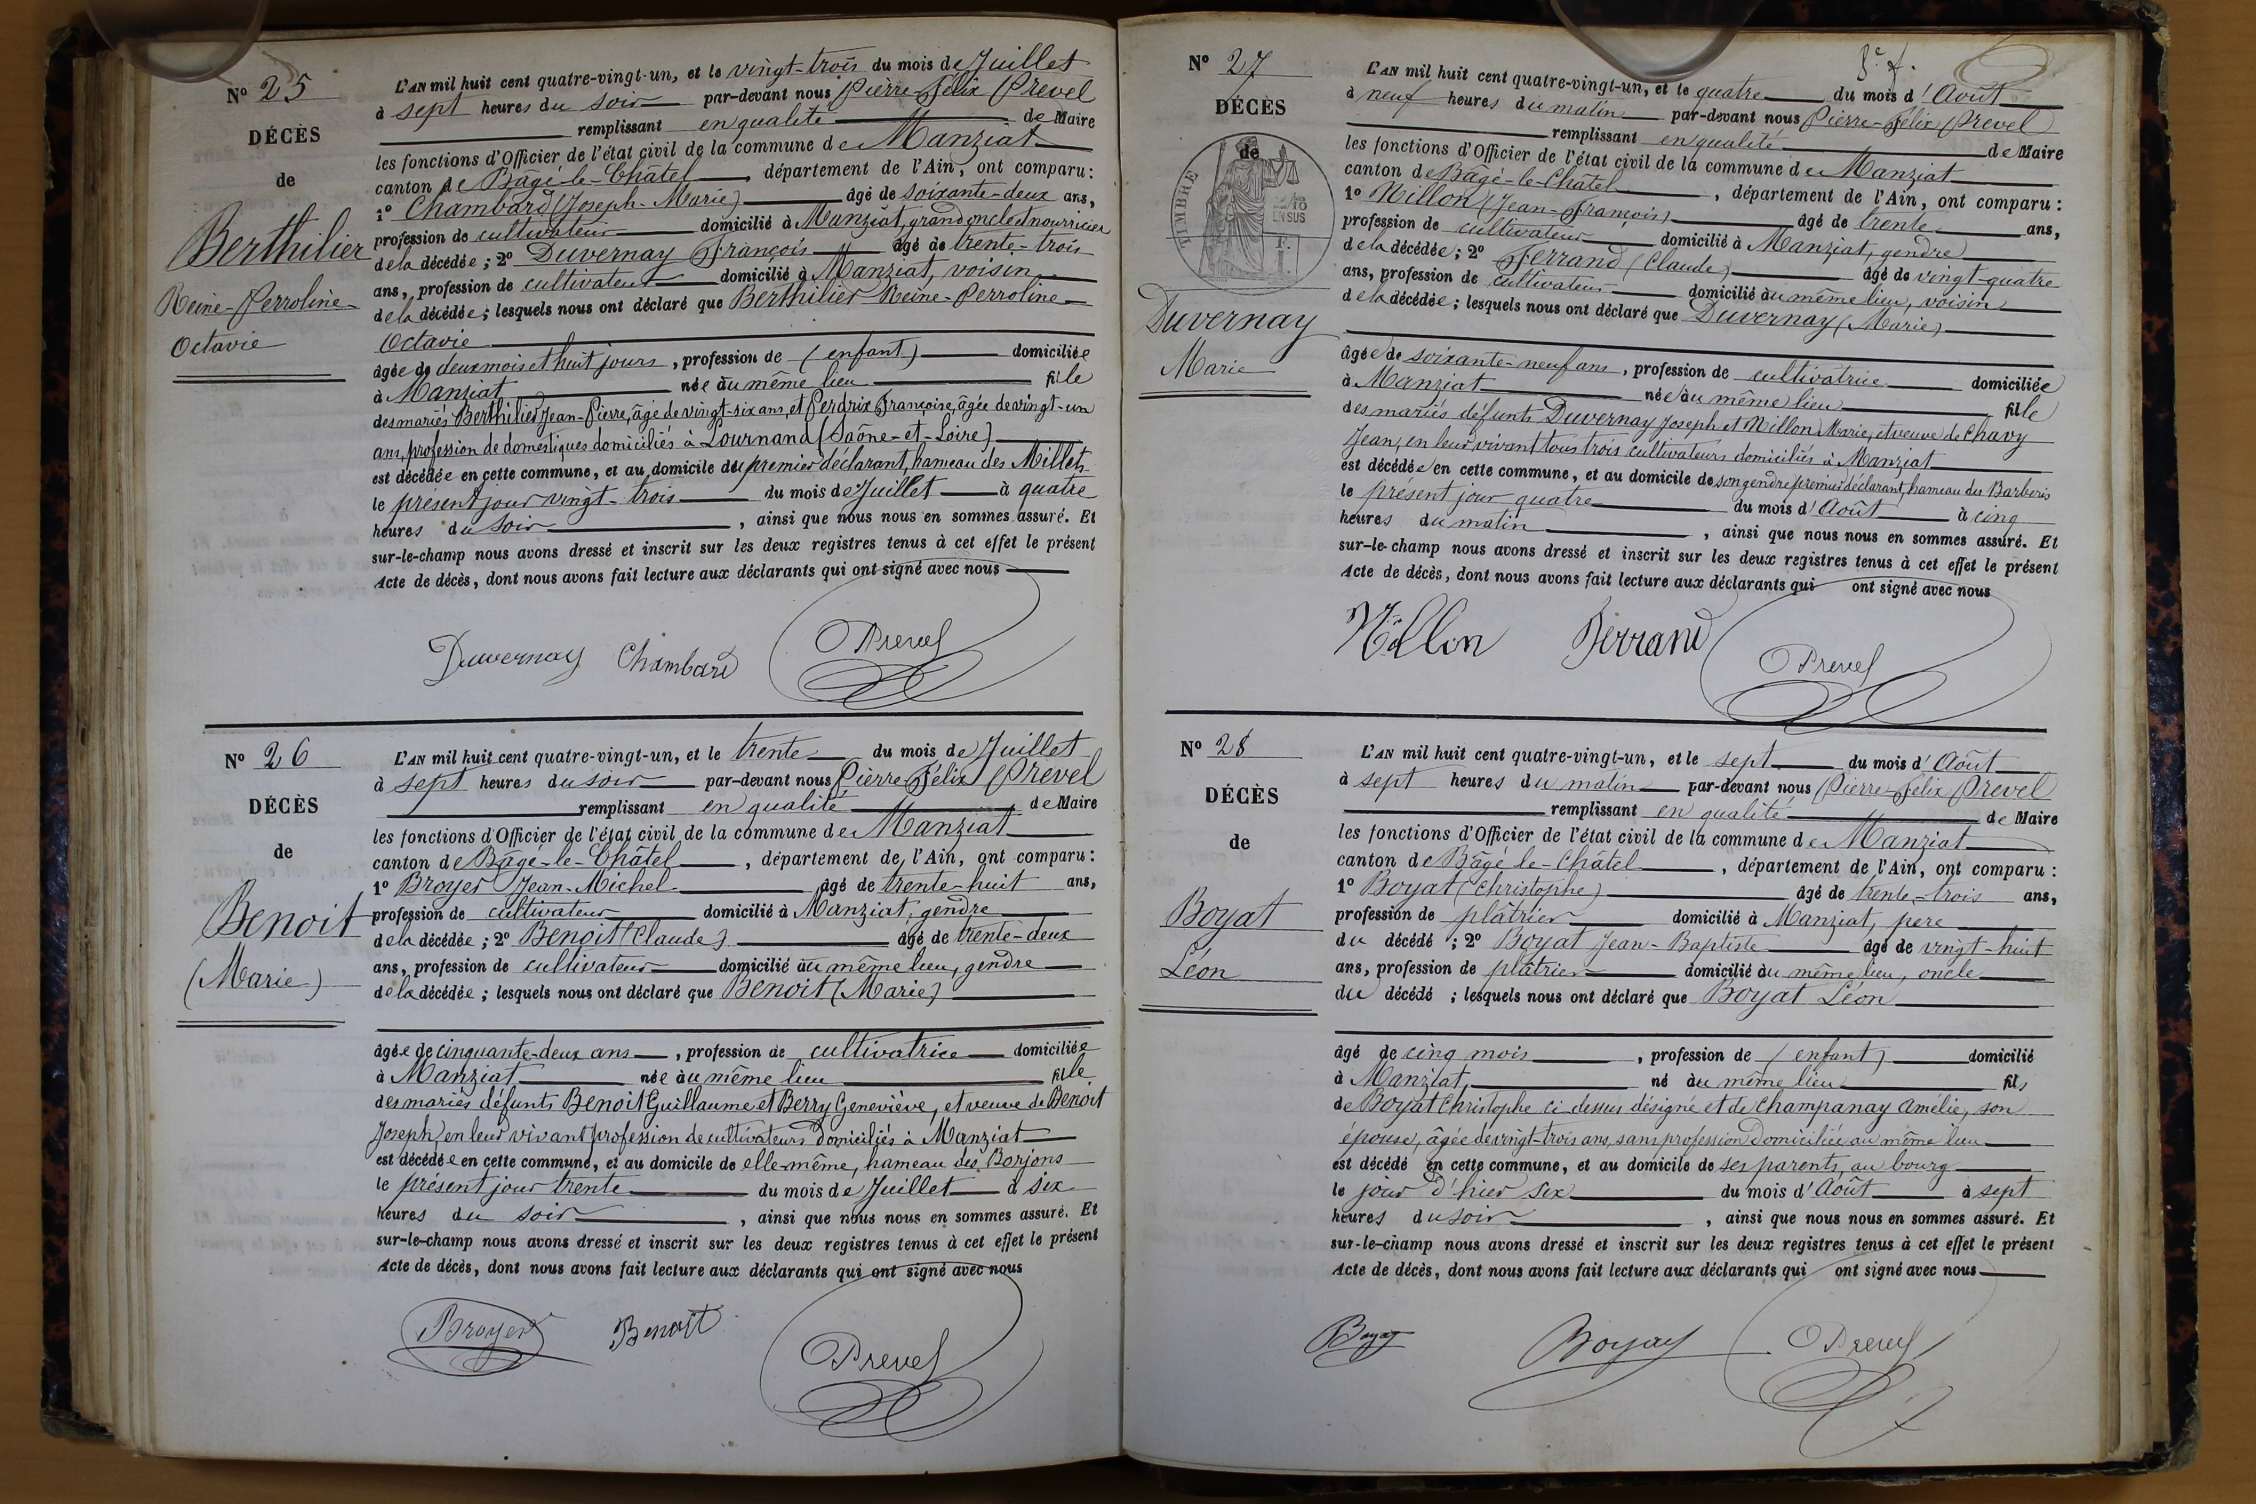 N° 25
DÉCÈS
de
Berthilier
Reine-Perroline-
Octavie
L'AN mil huit cent quatre-vingt-un, et le vingt-trois du mois de Juillet
à sept heures du soir par-devant nous Pierre Félix Prevel
remplissant en qualité de Maire
les fonctions d'Officier de l'état civil de la commune de Manziat
canton de Bâgé-le-Châtel, département de l'Ain, ont comparu:
1° Chambard (Joseph-Marie) âgé de soixante-deux ans,
profession de cultivateur domicilié à Manziat, grand oncle et nourricier
de la décédée; 2° Duvernay François âgé de trente-trois
ans, profession de cultivateur domicilié à Manziat, voisin
de la décédée; lesquels nous ont déclaré que Berthilier Reine-Perroline-
Octavie
âgée de deux mois et huit jours, profession de (enfant) domiciliée
à Manziat née au même lieu fille
des mariés Berthilier Jean-Pierre, âgé de vingt-six ans, et Perdrix Françoise, âgée de vingt-un
ans, profession de domestiques domiciliés à Lournand (Saône-et-Loire)
est décédée en cette commune, et au domicile du premier déclarant, hameau des Millets
le présent jour vingt-trois du mois de Juillet à quatre
heures du soir, ainsi que nous nous en sommes assuré. Et
sur-le-champ nous avons dressé et inscrit sur les deux registres tenus à cet effet le présent
Acte de décès, dont nous avons fait lecture aux déclarants qui ont signé avec nous
Duvernay Chambard Prevel
N° 26
DÉCÈS
de
Benoit
(Marie)
L'AN mil huit cent quatre-vingt-un, et le trente du mois de Juillet
à sept heures du soir par-devant nous Pierre Félix Prevel
remplissant en qualité de Maire
les fonctions d'Officier de l'état civil de la commune de Manziat
canton de Bâgé-le-Châtel, département de l'Ain, ont comparu:
1° Broyer Jean-Michel âgé de trente-huit ans,
profession de cultivateur domicilié à Manziat, gendre
de la décédée; 2° Benoit (Claude) âgé de trente-deux
ans, profession de cultivateur domicilié au même lieu, gendre
de la décédée; lesquels nous ont déclaré que Benoit (Marie)
âgée de cinquante-deux ans, profession de cultivatrice domiciliée
à Manziat née au même lieu fille
des mariés défunts Benoit Guillaume et Berry Geneviève, et veuve de Benoit
Joseph, en leur vivant profession de cultivateurs domiciliés à Manziat
est décédée en cette commune, et au domicile de elle-même, hameau des Borjons
le présent jour trente du mois de Juillet à six
heures du soir, ainsi que nous nous en sommes assuré. Et
sur-le-champ nous avons dressé et inscrit sur les deux registres tenus à cet effet le présent
Acte de décès, dont nous avons fait lecture aux déclarants qui ont signé avec nous
Broyer Benoit Prevel
N° 27
DÉCÈS
de
TIMBRE
2/10
EN SUS
Duvernay
Marie
L'AN mil huit cent quatre-vingt-un, et le quatre du mois d'Août
à neuf heures du matin par-devant nous Pierre-Félix Prevel
remplissant en qualité de Maire
les fonctions d'Officier de l'état civil de la commune de Manziat
canton de Bâgé-le-Châtel, département de l'Ain, ont comparu:
1° Millon (Jean-François) âgé de trente ans,
profession de cultivateur domicilié à Manziat, gendre
de la décédée; 2° Ferrand (Claude) âgé de vingt-quatre
ans, profession de cultivateur domicilié au même lieu, voisin
de la décédée; lesquels nous ont déclaré que Duvernay (Marie)
âgée de soixante-neuf ans, profession de cultivatrice domiciliée
à Manziat née au même lieu fille
des mariés défunts Duvernay Joseph et Millon Marie, et veuve de Chavy
Jean, en leur vivant tous trois cultivateurs domiciliés à Manziat
est décédée en cette commune, et au domicile de son gendre premier déclarant, hameau des Barberis
le présent jour quatre du mois d'Août à cinq
heures du matin, ainsi que nous nous en sommes assuré. Et
sur-le-champ nous avons dressé et inscrit sur les deux registres tenus à cet effet le présent
Acte de décès, dont nous avons fait lecture aux déclarants qui ont signé avec nous
Millon Ferrand Prevel
N° 28
DÉCÈS
de
Boyat
Léon
L'AN mil huit cent quatre-vingt-un, et le sept du mois d'Août
à sept heures du matin par-devant nous Pierre-Félix Prevel
remplissant en qualité de Maire
les fonctions d'Officier de l'état civil de la commune de Manziat
canton de Bâgé-le-Châtel, département de l'Ain, ont comparu:
1° Boyat (Christophe) âgé de trente-trois ans,
profession de plâtrier domicilié à Manziat, père
du décédé; 2° Boyat Jean-Baptiste âgé de vingt-huit
ans, profession de plâtrier domicilié au même lieu, oncle
du décédé; lesquels nous ont déclaré que Boyat Léon
âgé de cinq mois, profession de (enfant) domicilié
à Manziat, né au même lieu fils
de Boyat Christophe ci-dessus désigné et de Champanay Amélie, son
épouse, âgée de vingt-trois ans, sans profession domiciliée au même lieu
est décédé en cette commune, et au domicile de ses parents, au bourg
le jour d'hier six du mois d'Août à sept
heures du soir, ainsi que nous nous en sommes assuré. Et
sur-le-champ nous avons dressé et inscrit sur les deux registres tenus à cet effet le présent
Acte de décès, dont nous avons fait lecture aux déclarants qui ont signé avec nous
Boyat Boyat Prevel